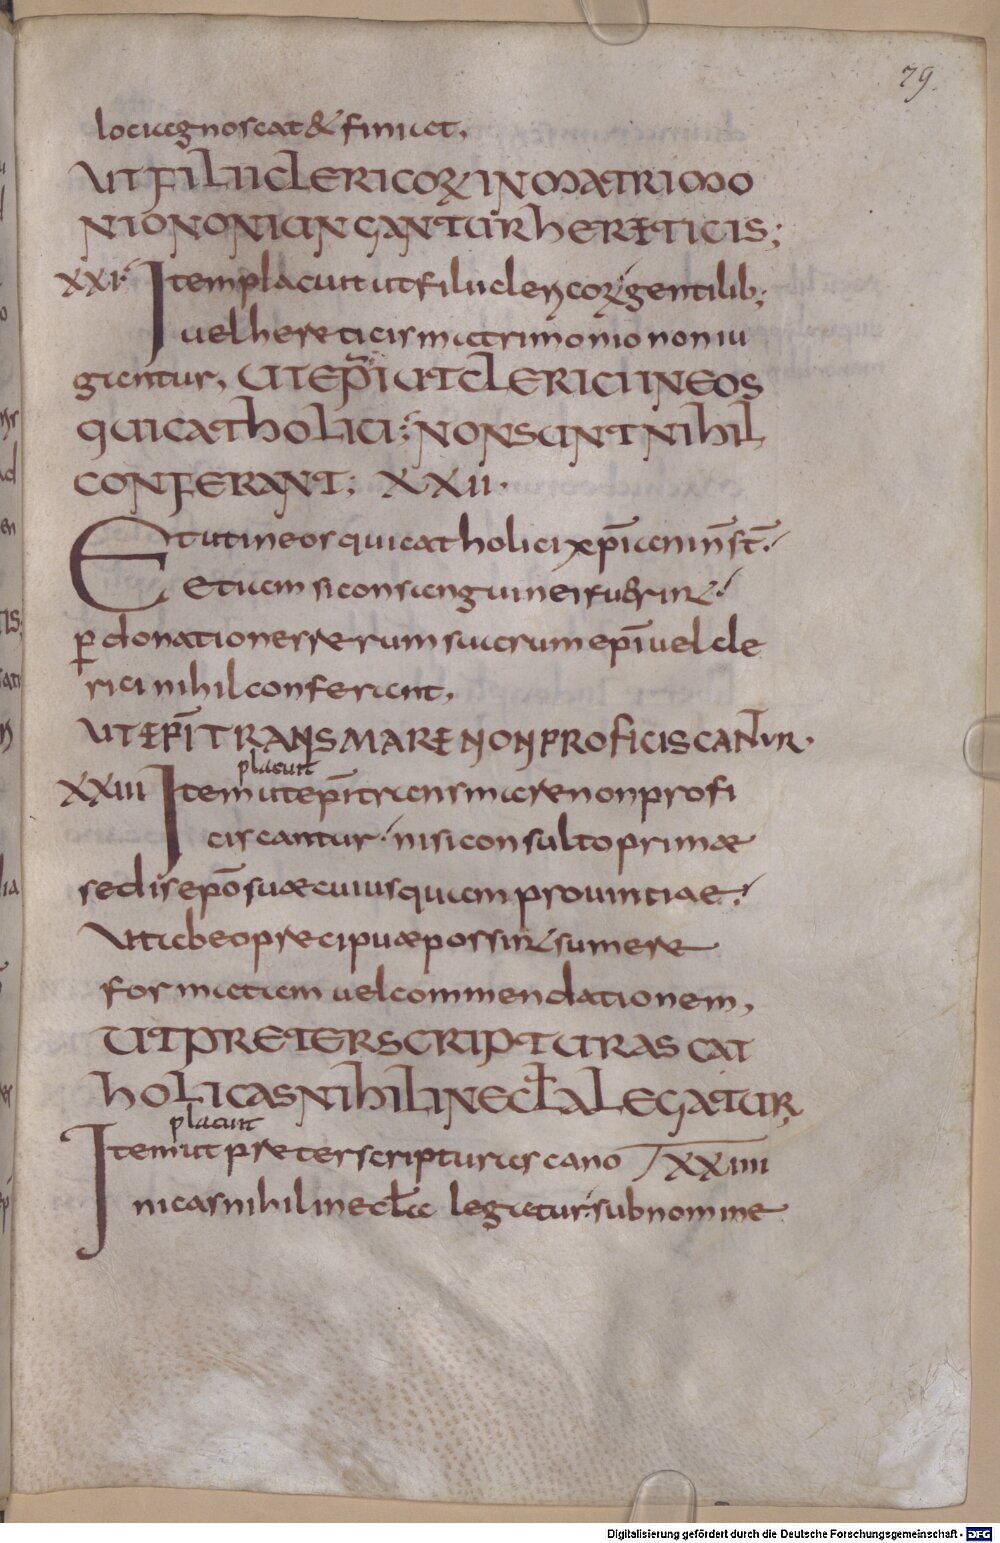 79.
loci agnoscat & finiat,
UT FILII CLERICORŪ IN MATRIMO
NIO NON IUNGANTUR HERETICIS;
XXI. Item placuit ut filii clericorū gentilib;
uel hereticis matrimonio non iu
gientur, UT EPI UT CLERICI IN EOS
QUI CATHOLICI; NON SUNT NIHIL
CONFERANT; XXII.
Et ut in eos qui catholici xpiani n̄ st̄.
Etiam si consanguinei fuerint
p donationes rerum suarum epi uel cle
rici nihil conferant,
UT EPI TRANS MARE NON PROFICISCANTUR.
placuit
XXIII Item ut epi trans mare non profi
ciscantur nisi consulto primae
sedis epo suae cuiusquam prouintiae.
Ut ab eo precipuae possint sumere
formatam uel commendationem,
UT PRETER SCRIPTURAS CAT
HOLICAS NIHIL IN ECLA LEGATUR,
placuit
Item ut preter scripturas cano XXIIII
nicas nihil in ecla legatur. sub nomine
Digitalisierung gefördert durch die Deutsche Forschungsgemeinschaft - DFG